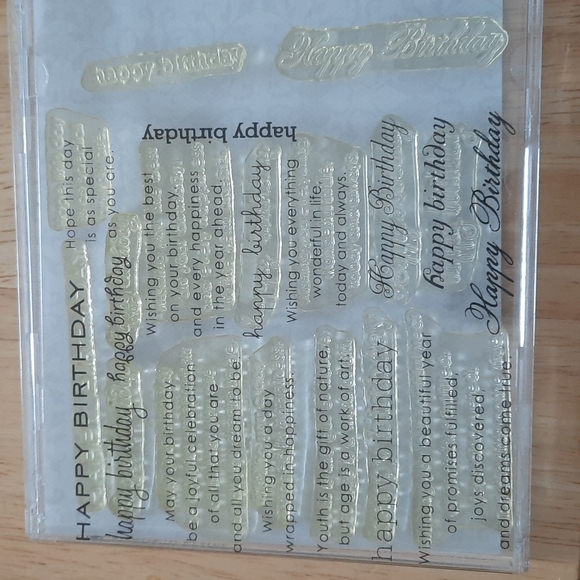 happy birthday
Happy Birthday
happy birthday
Hope this day
is as special
as you are.
Wishing you the best
on your birthday
and every happiness
in the year ahead.
happy birthday
Wishing you everything
wonderful in life,
today and always.
Happy Birthday
happy birthday
Happy Birthday
HAPPY BIRTHDAY
happy birthday
happy birthday
May your birthday
be a joyful celebration
of all that you are
and all you dream to be.
Wishing you a day
wrapped in happiness.
Youth is the gift of nature,
but age is a work of art.
happy birthday
Wishing you a beautiful year
of promises fulfilled,
joys discovered,
and dreams come true.